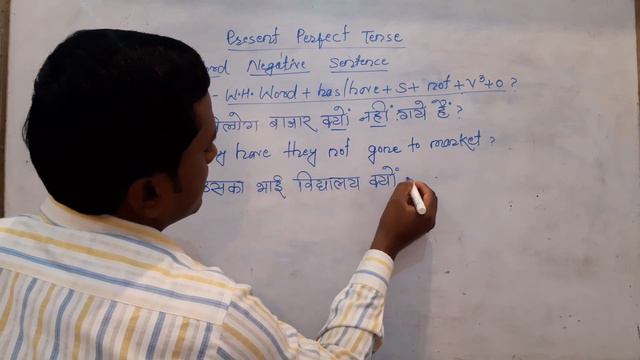 Present Perfect Tense
Negative Sentence
- W.H. Word + has/have + S + not + V³ + O ?
लोग बाजार क्यों नहीं गये हैं ?
have they not gone to market ?
उसका भाई विद्यालय क्यों